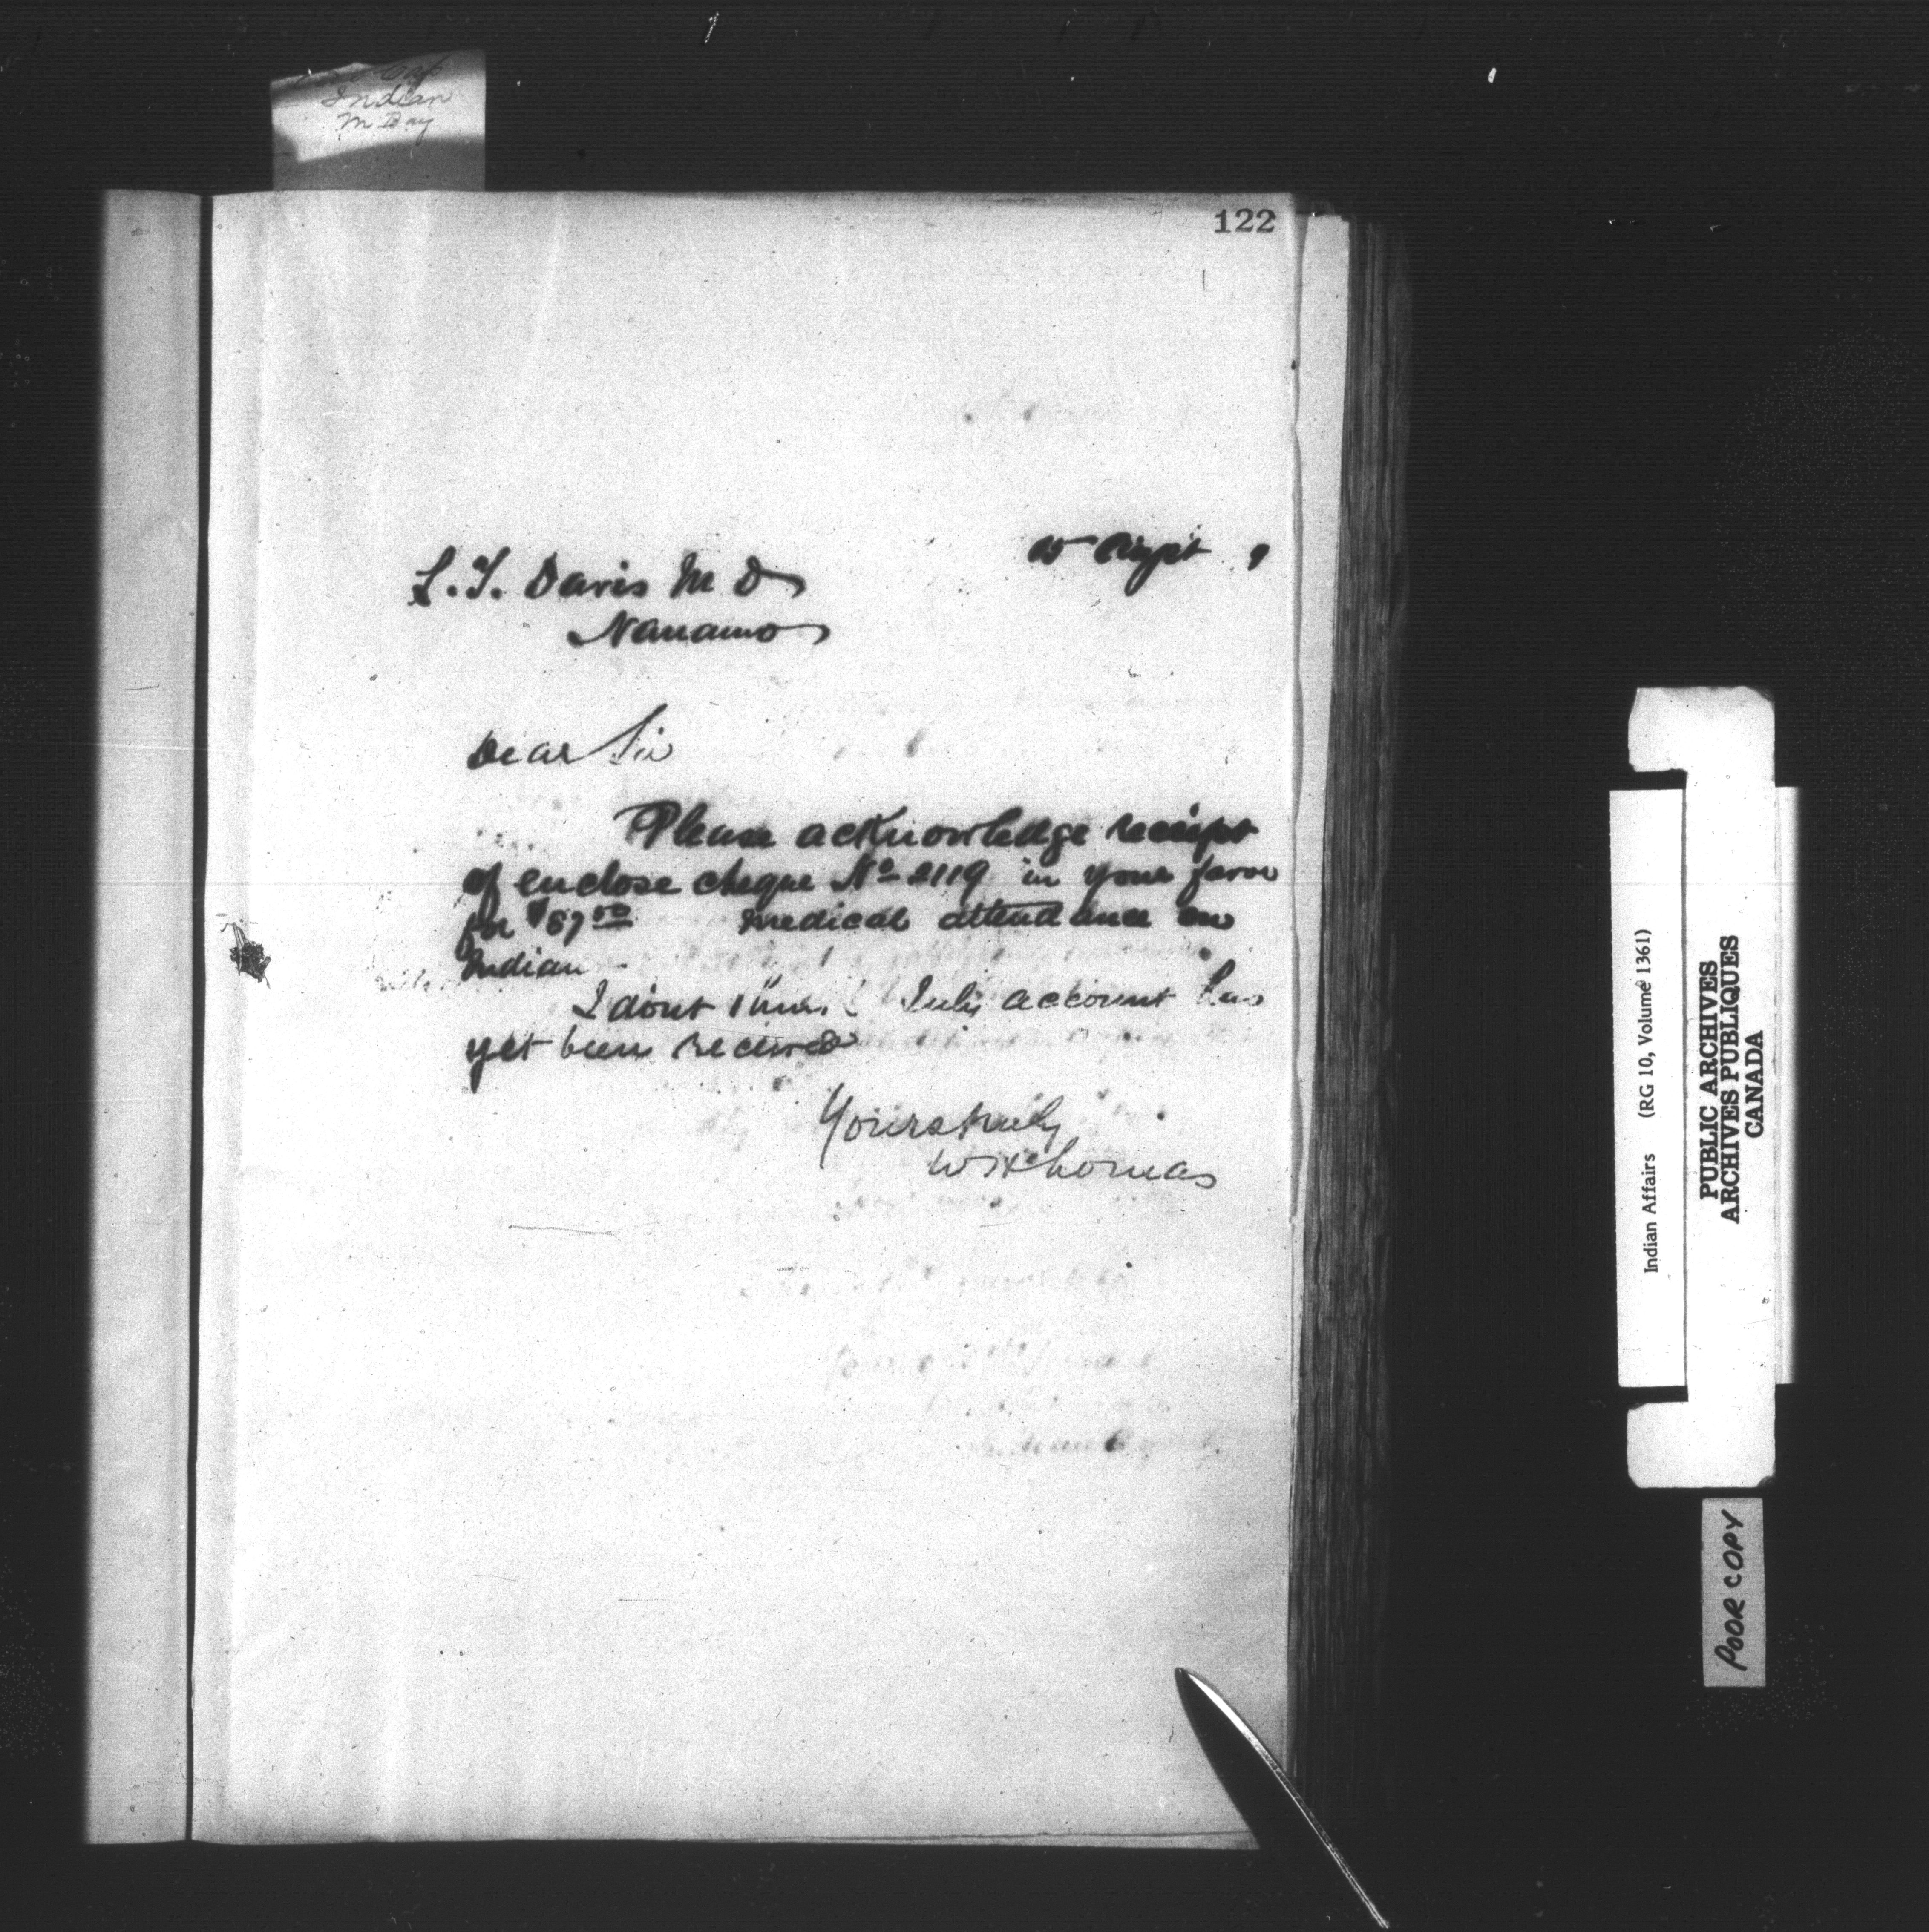 Indian
122
L. T. Davis M D
Nanaimo
Dear Sir
Please acknowledge receipt
of enclose cheque No 2119 in your favor
for $87.50 medical attendance on
Indian
I dont July account has
yet been received
Yours truly
W H Lomas
Indian Affairs (RG 10, Volume 1361)
PUBLIC ARCHIVES
ARCHIVES PUBLIQUES
CANADA
POOR COPY